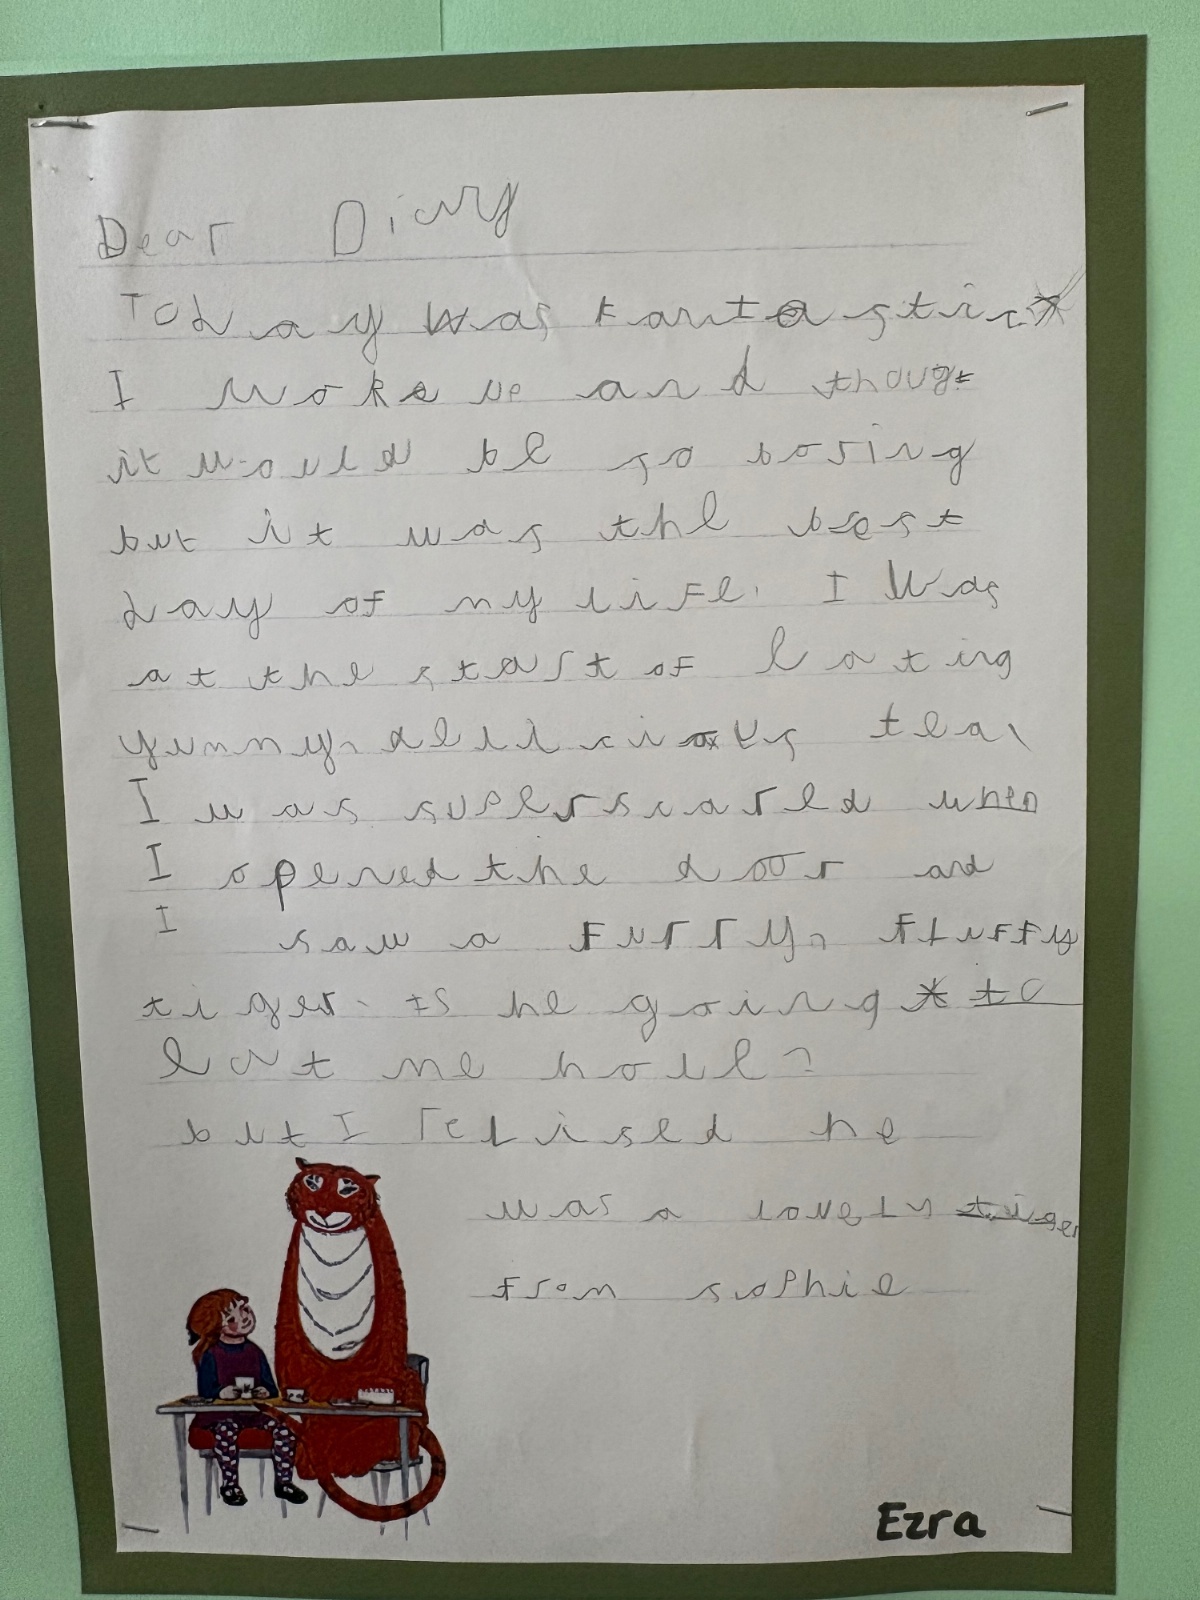 Dear Diary
Today was fantastic
I woke up and thougt
it would be so boring
but it was the best
day of my life. I Was
at the start of eating
yummy, delicious tea.
I was superscared when
I opened the door and
I saw a furry, fluffy
tiger. Is he going to
eat me hole?
but I relised he
was a lovely tiger
from sophie
Ezra